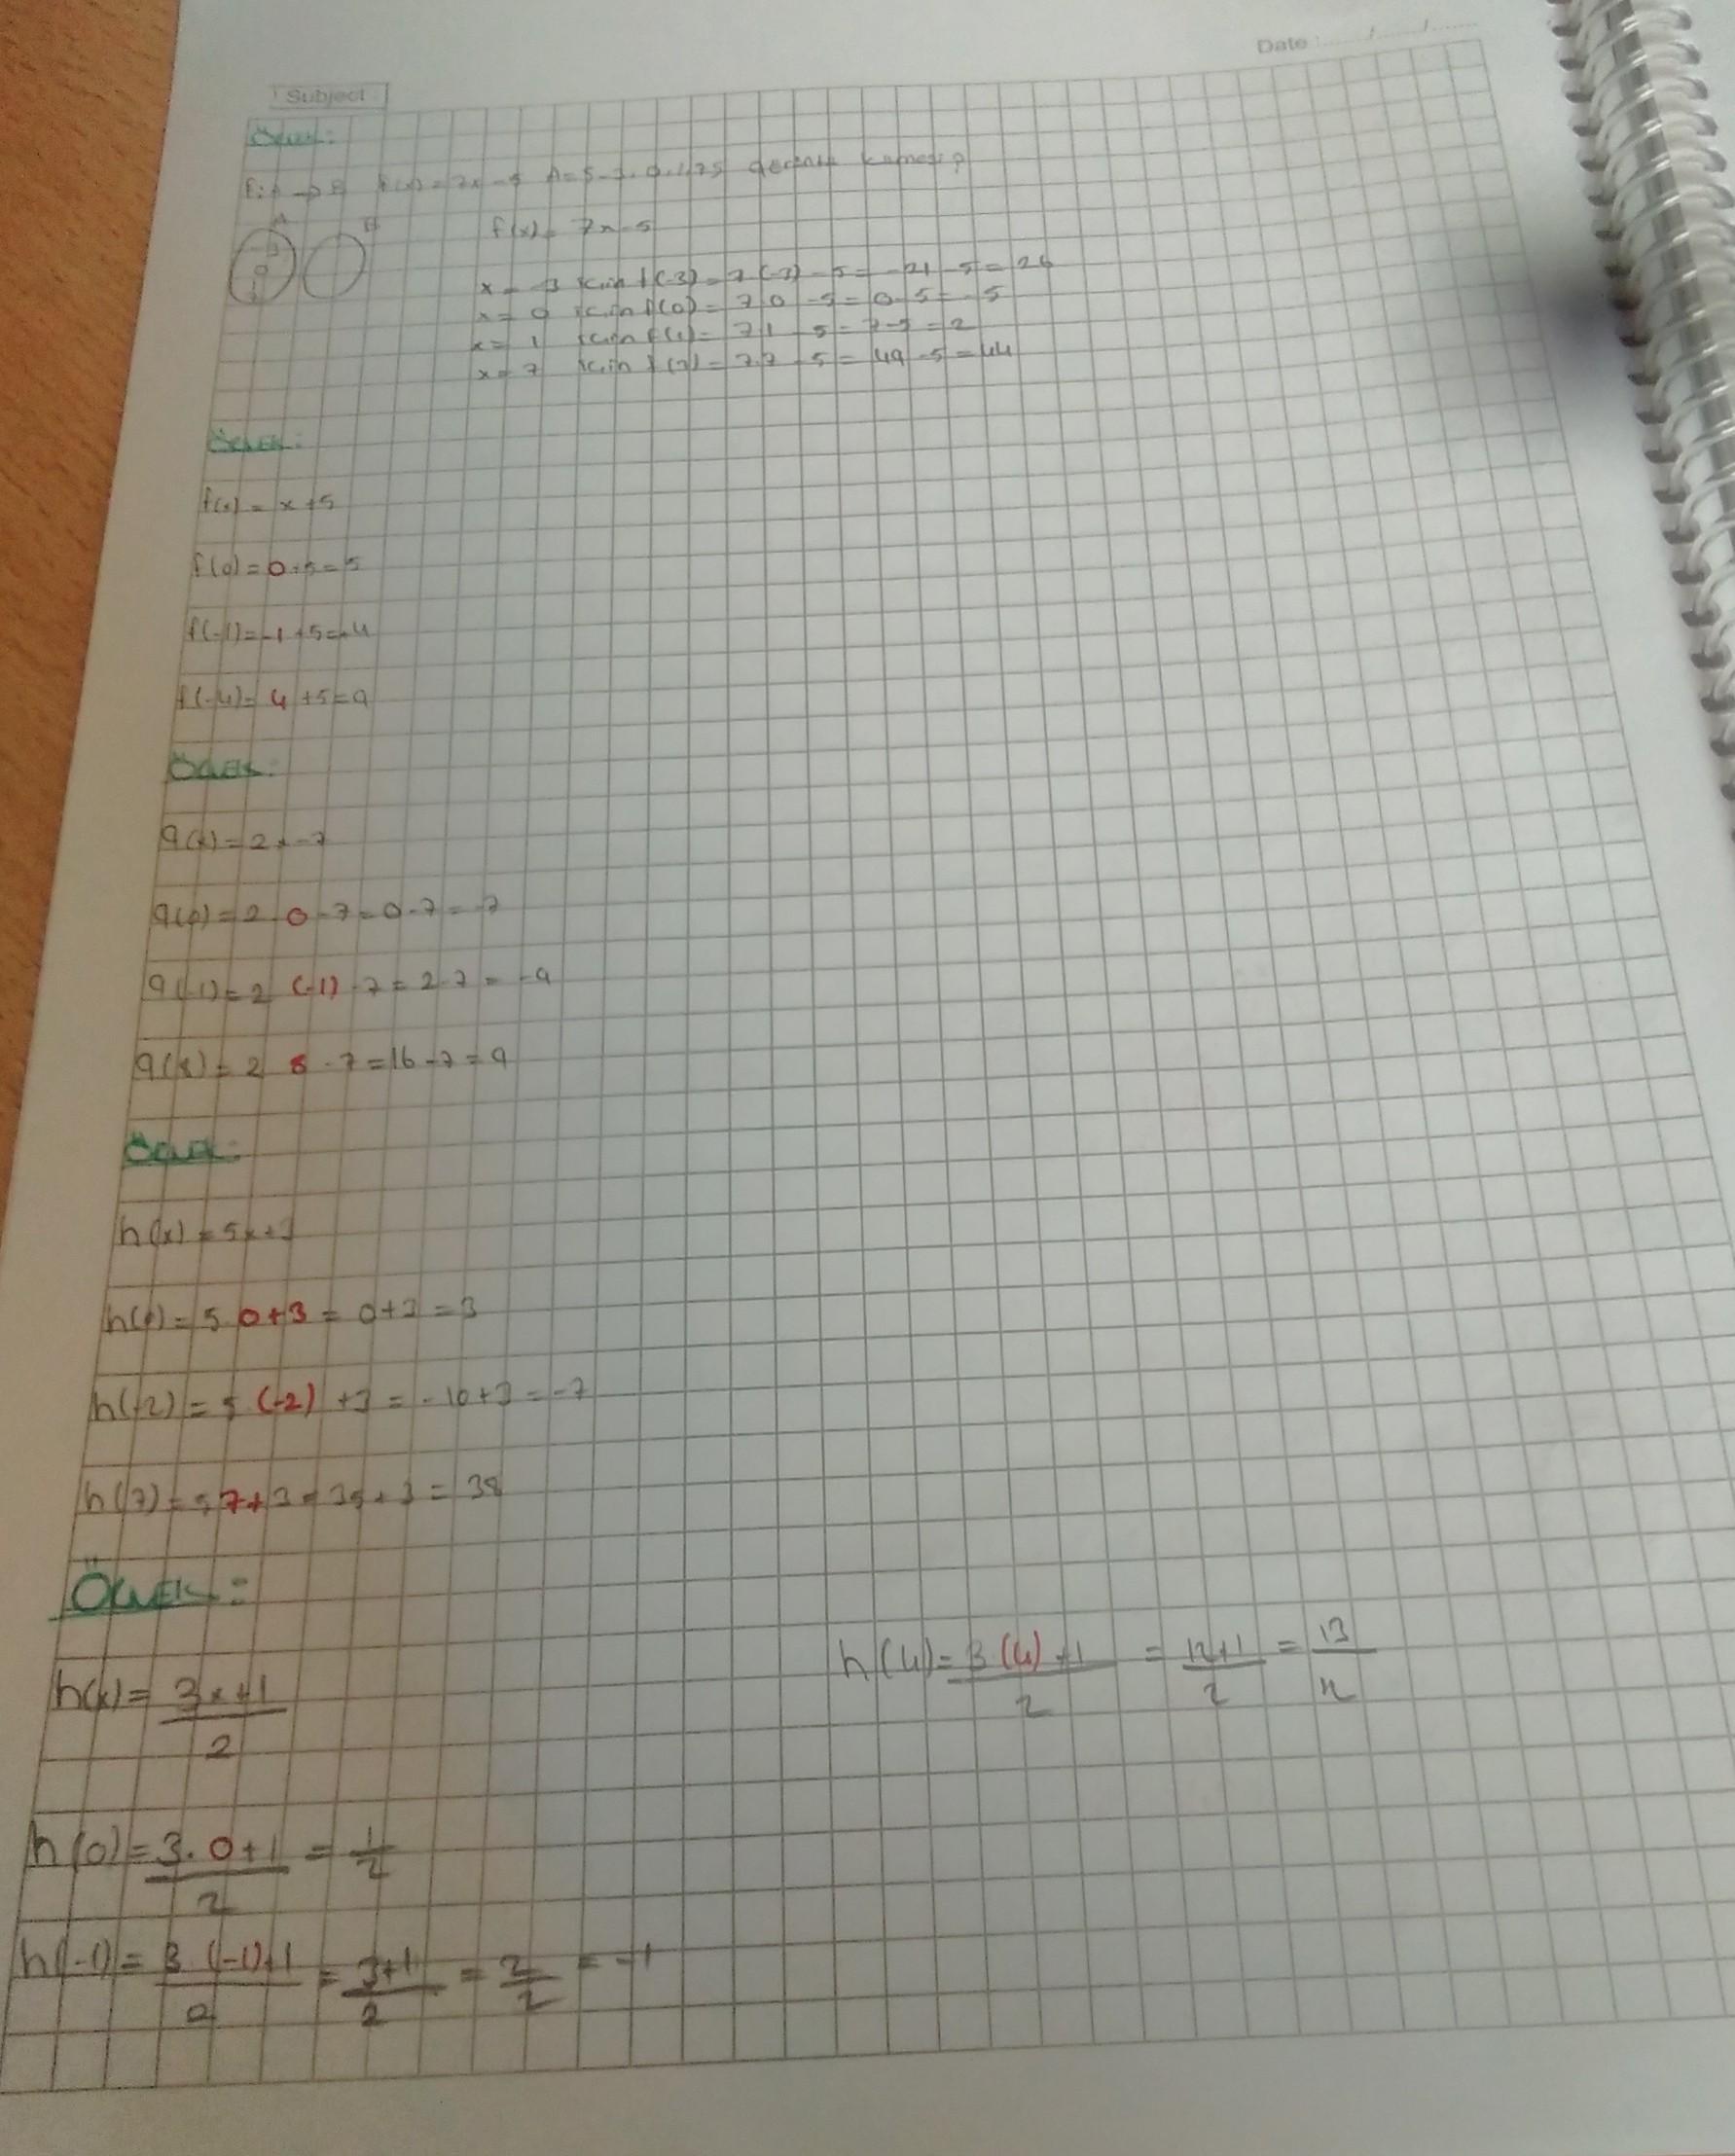 Date :
Subject
ÖRNEK:
f: A → B f(x) = 7x - 5 A = { -3, 0, 1, 7 }
A B
f(x) = 7x - 5
x = -3 için f(-3) = 7.(-3) - 5 = -21 - 5 = 26
x = 0 için f(0) = 7.0 - 5 = 0 - 5 = -5
x = 1 için f(1) = 7.1 - 5 = 7 - 5 = 2
x = 7 için f(7) = 7.7 - 5 = 49 - 5 = 44
ÖRNEK:
f(x) = x + 5
f(0) = 0 + 5 = 5
f(-1) = -1 + 5 = 4
f(-4) = 4 + 5 = 9
ÖRNEK:
g(x) = 2x - 7
g(0) = 2.0 - 7 = 0 - 7 = -7
g(-1) = 2 (-1) - 7 = 2 - 7 = -9
g(8) = 2 8 - 7 = 16 - 7 = 9
ÖRNEK:
h(x) = 5x + 3
h(0) = 5.0 + 3 = 0 + 3 = 3
h(-2) = 5.(-2) + 3 = -10 + 3 = -7
h(7) = 5.7 + 3 = 35 + 3 = 38
ÖRNEK:
h(x) = 3x + 1 / 2
h(4) = 3.(4) + 1 / 2 = 12 + 1 / 2 = 13 / 2
h(0) = 3.0 + 1 / 2 = 1 / 2
h(-1) = 3.(-1) + 1 / 2 = 3 + 1 / 2 = 2 / 2 = -1